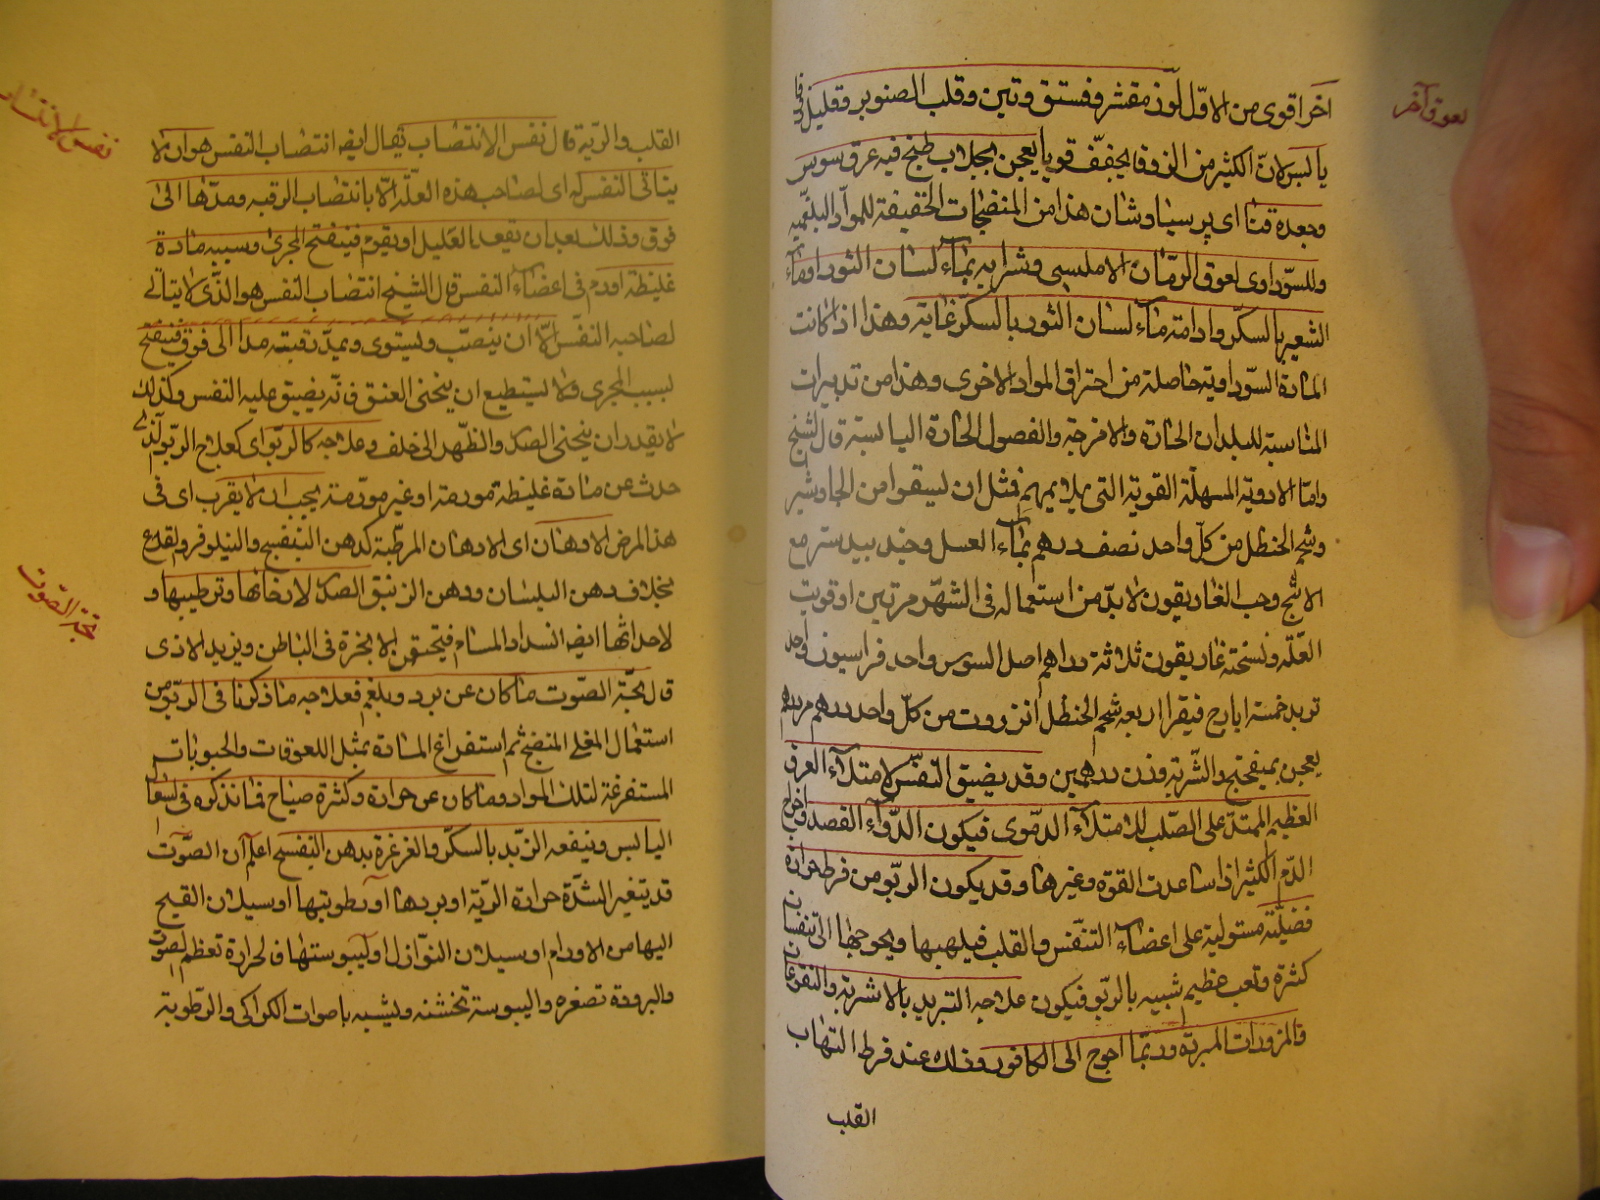 لعوق آخر
اخر اقوى من الاوّل لوز مقشر وفستق وتين وقلب الصنوبر وقليل
باليس لانّ الكثير من الزوفا يجفّف قويا يعجن بجلاب طبخ فيه عرق سوس
وجعده قنا اى پرسياوشان هذا من المنضجات الخفيفة للموادّ البلغميه
وللسّوداوى لعوق الرمّان الامليسى وشرابه بمآء لسان الثور او مآء
الشعير بالسكّر وادامة مآء لسان الثور بالسكّر غاية وهذا اذا كانت
المادة السّوداوية حاصلة من احتراق المواد الاخرى وهذا من تدبيرات
المناسبة للبلدان الحارة والامزجة والفصول الحارة اليابسة قال الشيخ
وامّا الادوية المسهلة القوية التى يلايمهم فمثل ان يسقوا من الجاوشير
وشحم الحنظل من كلّ واحد نصف درهم بمآء العسل وجندبيدستر مع
الاشج وحب الغاريقون لا بدّ من استعماله فى الشهر مرتين اذا قويت
العلّة ونسخته غاريقون ثلاثة دراهم اصل السوس واحد فراسيون واحد
تربد خمسة ايارج فيقرا اربعه شحم الحنظل انزروت من كلّ واحد درهم
يعجن بميفختج والشربة وزن درهمين وقد يضيق التنفّس لامتلآء العرق
العظيم الممتدّ على الصّلب الامتلآء الدموى فيكون الدّوآء الفصد واخراج
الدّم الكثير اذا ساعدت القوّة وغيرها وقد يكون الربو من فرط حرارة
مستولية على اعضآء التنفّس والقلب فيلهبها ويحوجها الى تنفسات
كثيرة وتعب عظيم شبيه بالربّو فيكون علاجه التبريد بالاشربة والنقوعات
والمزورات المبردة وربّما احوج الى الكافور وذلك عند فرط التهاب
القلب
القلب والريّة قال نفس الانتصاب يقال ايضا انتصاب النفس هو ان لا
يتاتى النفس له اى لصاحب هذه العلّة الّا بانتصاب الرقبه ومدّها الى
فوق وذلك بعد ان يقعد العليل او يقوم فينفتح المجرى وسببه مادة
غليظة او ورم فى اعضآء النفس قال الشيخ انتصاب النفس هو الذّى لا يتاتى
لصاحبه النفس الّا ان ينصب ويستوى ويمدّ رقبته مدا الى فوق فينفتح
بسبب المجرى ولا يستطيع ان يحنى العنق فانّه يضيق عليه النفس وكذلك
لا يقدر ان يحنى الصدر والظهر الى خلف وعلاجه كالربّو اى كعلاج الربّو الّذى
حدث عن مادة غليظة مورمة او غير مورمة يجب ان لا يقرب اى فى
هذا المرض الادهان اى الادهان المرطّبة كدهن البنفسج والنيلوفر والقرع
بخلاف دهن البلسان ودهن الزنبق الصدر لارخائها وترطيبها و
لاحداثها ايضا انسداد المسام فيحتقن الابخرة فى الباطن ويزيد الاذى
قال بحّة الصّوت ما كان عن برد وبلغم فعلاجه ما ذكرنا فى الربّو من
استعمال المغلى المنضج ثم استفراغ المادة بمثل اللعوقات والحبوبات
المستفرغة لتلك المواد وما كان عن حرارة وكثرة صياح فما نذكره فى السعال
اليابس وينفعه الزبد بالسكّر والغرغرة بدهن البنفسج اعلم ان الصّوت
قد يتغير لشدّة حرارة الريّة او بردها او رطوبتها او سيلان القيح
اليها من الاورام او سيلان النوازل او ليبوستها فالحرارة تعظم الصوت
والبرودة تصغره واليبوسة تخشنه ويشبه باصوات الكراكى والرطوبة
بحّة الصّوت